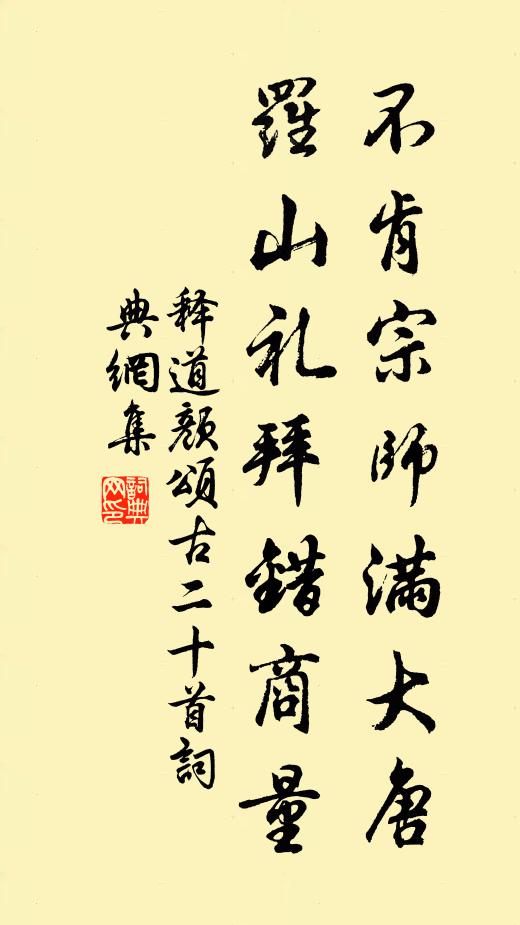 不肯宗師满大唐
羅山礼拜錯商量
释道颜頌古二十首詞
典網集
詞典网印